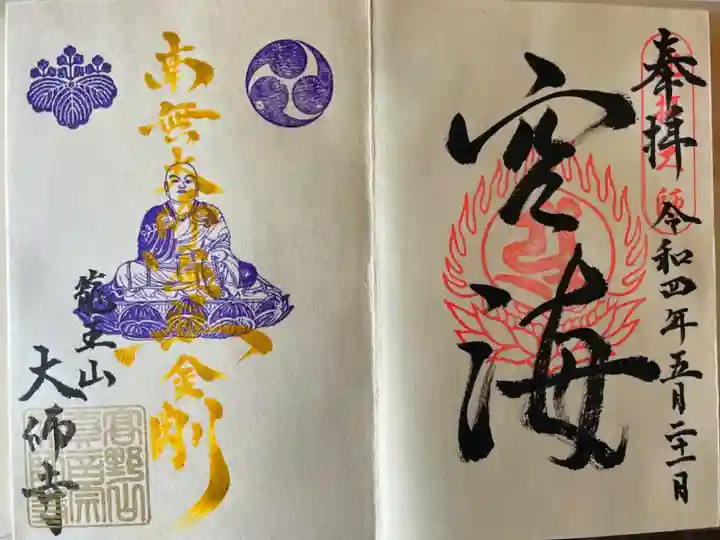 奉拝 令和四年五月二十一日
空海
南無大師遍照金剛
龍王山
大師寺
高野山
真言宗